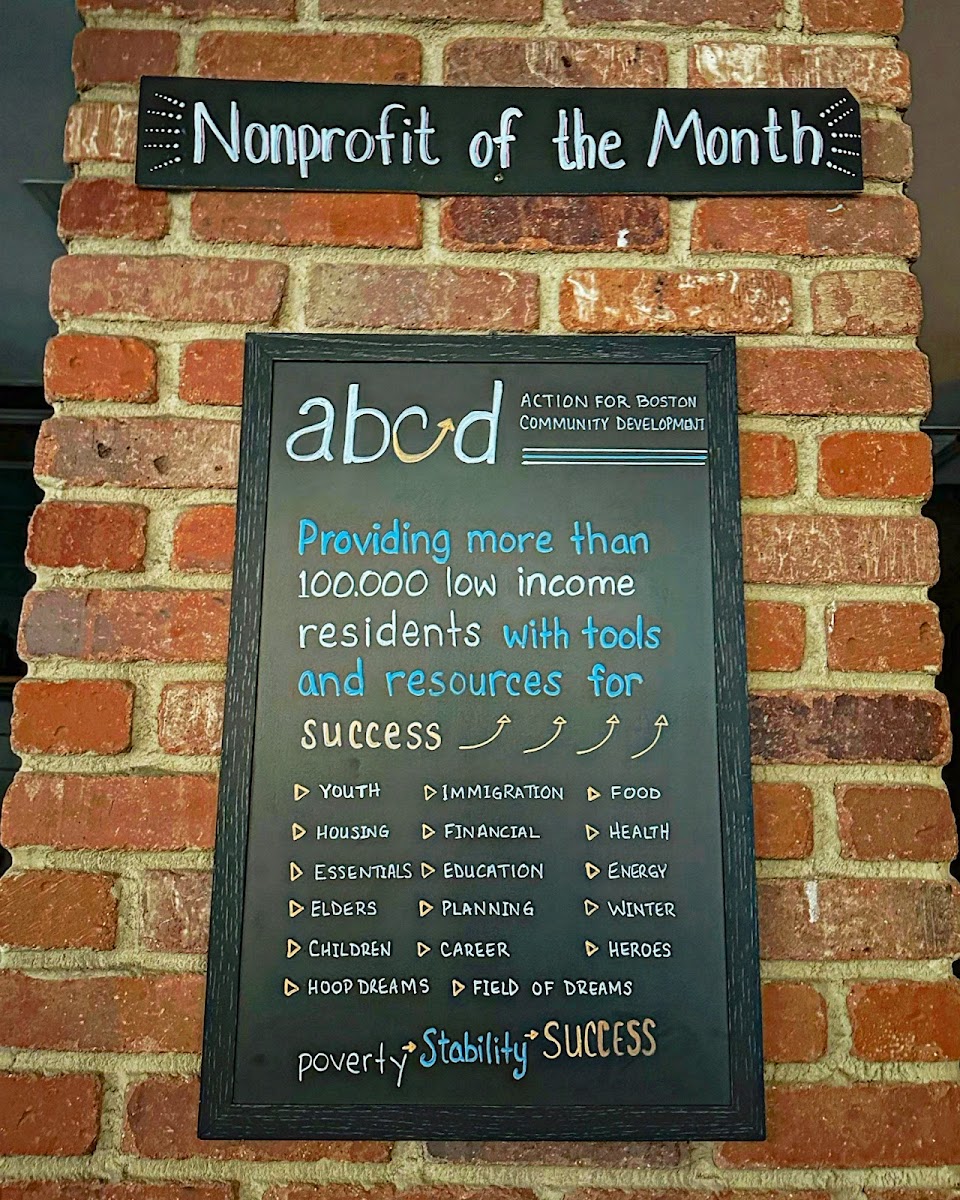 Nonprofit of the Month
abcd
ACTION FOR BOSTON
COMMUNITY DEVELOPMENT
Providing more than
100.000 low income
residents with tools
and resources for
success
YOUTH IMMIGRATION FOOD
HOUSING FINANCIAL HEALTH
ESSENTIALS EDUCATION ENERGY
ELDERS PLANNING WINTER
CHILDREN CAREER HEROES
HOOP DREAMS FIELD OF DREAMS
poverty Stability SUCCESS